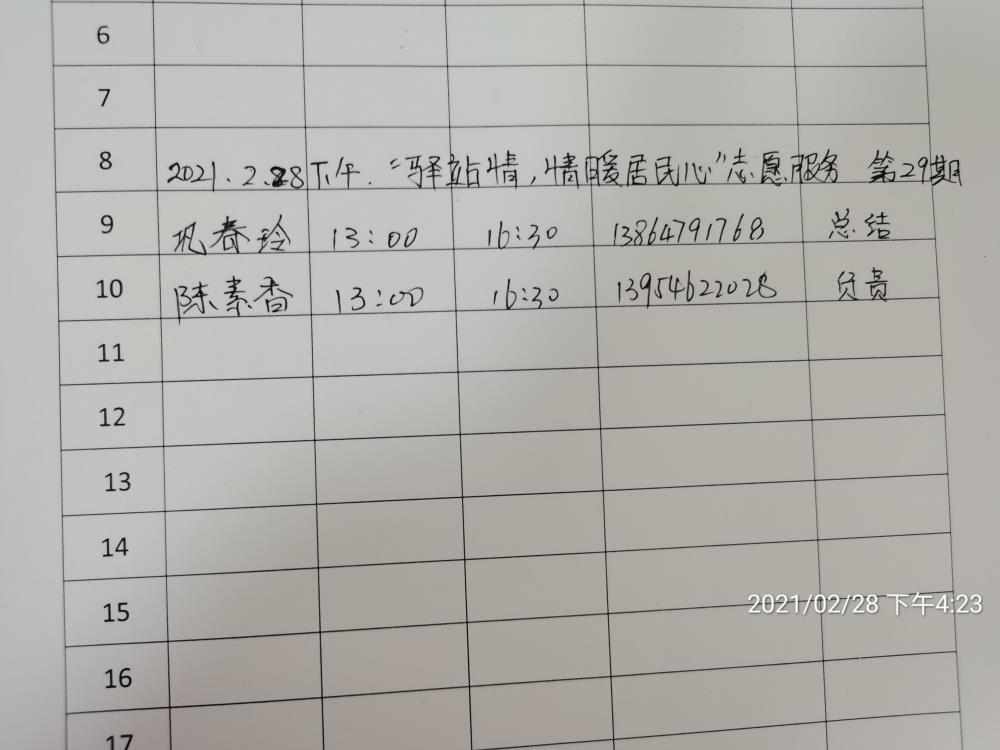 6
7
8 2021.2.28下午. "驿站情,情暖居民心"志愿服务 第29期
9 巩春玲 13:00 16:30 13864791768 总结
10 陈素香 13:00 16:30 13954622028 负责
11
12
13
14
15
2021/02/28 下午4:23
16
17